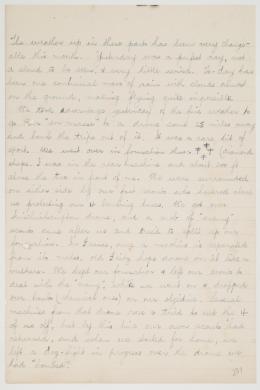 The weather up in these parts has been very change-
able this month. Yesterday was a perfect day, not
a cloud to be seen, & very little wind. To-day has
been one continual mass of rain with clouds almost
on the ground, making flying quite impossible.
We took advantage yesterday of the fine weather to
go Hun to a Hun drome about 25 miles away
and bomb the tripe out of it. It was a rare bit of
sport. We went over in formation thus (diamond
shape). I was in the rear machine and about 500 ft
above the two in front of me. We were surrounded
on either side by our scouts who hovered above
us protecting our 4 bombing buses. We got over
drome, and a mob of "enemy"
scouts came after us and tried to split up our
formation. In Junes, any a machine is separated
from its mates, old Fritz hops down on it like a
We kept our formation & left our scouts to
deal with the "enemy", while we went on & dropped
our bombs on our objective. Several
machines from that drome rose & tried to cut the 4
of us off, but by this time our own scouts had
returned, and when we sailed for home, we
left a dog-fight in progress over the drome we
had "bombed".